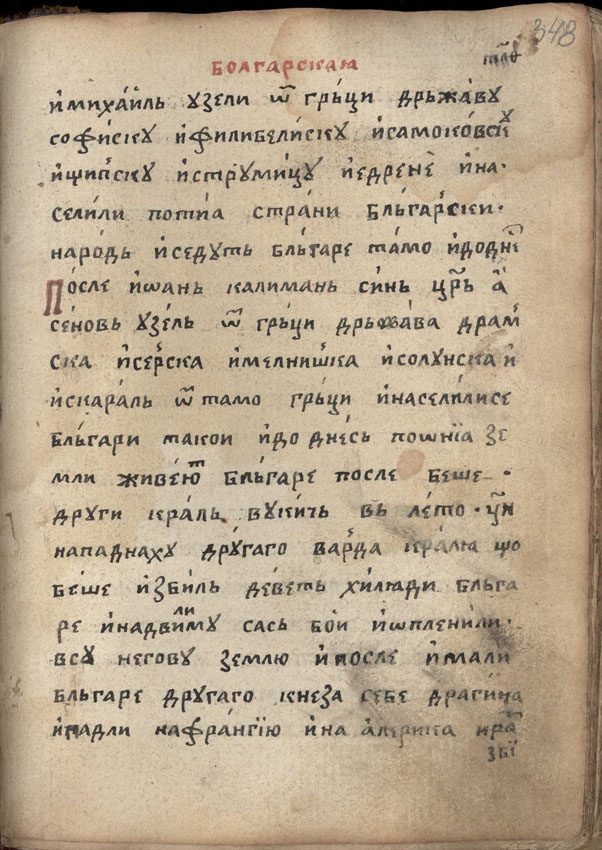 343
тл҃ѳ
БОЛГАРСКАЯ
и́михаи́ль узели ѿ гръци дръжа́ву
софи́ску и́филибели́ску и́самоко́вску
и́щип́ску и́струми́цу и́едрене̏ и́на·
сели́ли потиа страни блъга́рски·
наро́дь и́седуть блъ́гаре та́мо и́додн҃е
По́сле и́ѡань калимань си́нь цр҃ь а҆
се́новь узе́ль ѿ гръ́ци дръжа́ва драм
ска и́се́рска и́мелни́шка и́солунска и҆
и́скара́ль ѿ тамо гръ́ци и́насели́лисе
блъ́гари такои и́до дне́сь поѡнїа зе
мли живе́ют блъ́гаре после беше ·
други кра́ль вуки́чь въ ле́то · ѿн
нападнаху дру́гаго ва́рда кра́лю що
бе́ше и́збиль де́веть хи́люди блъга
ре и́надвилиму сась бои и́ѡпленили·
всу негову землю и́после и́мали
блъгаре дру́гаго кнеза себе драги́ча
и́падли нафра́нгїю и́на а҆лерика кра҃
збї